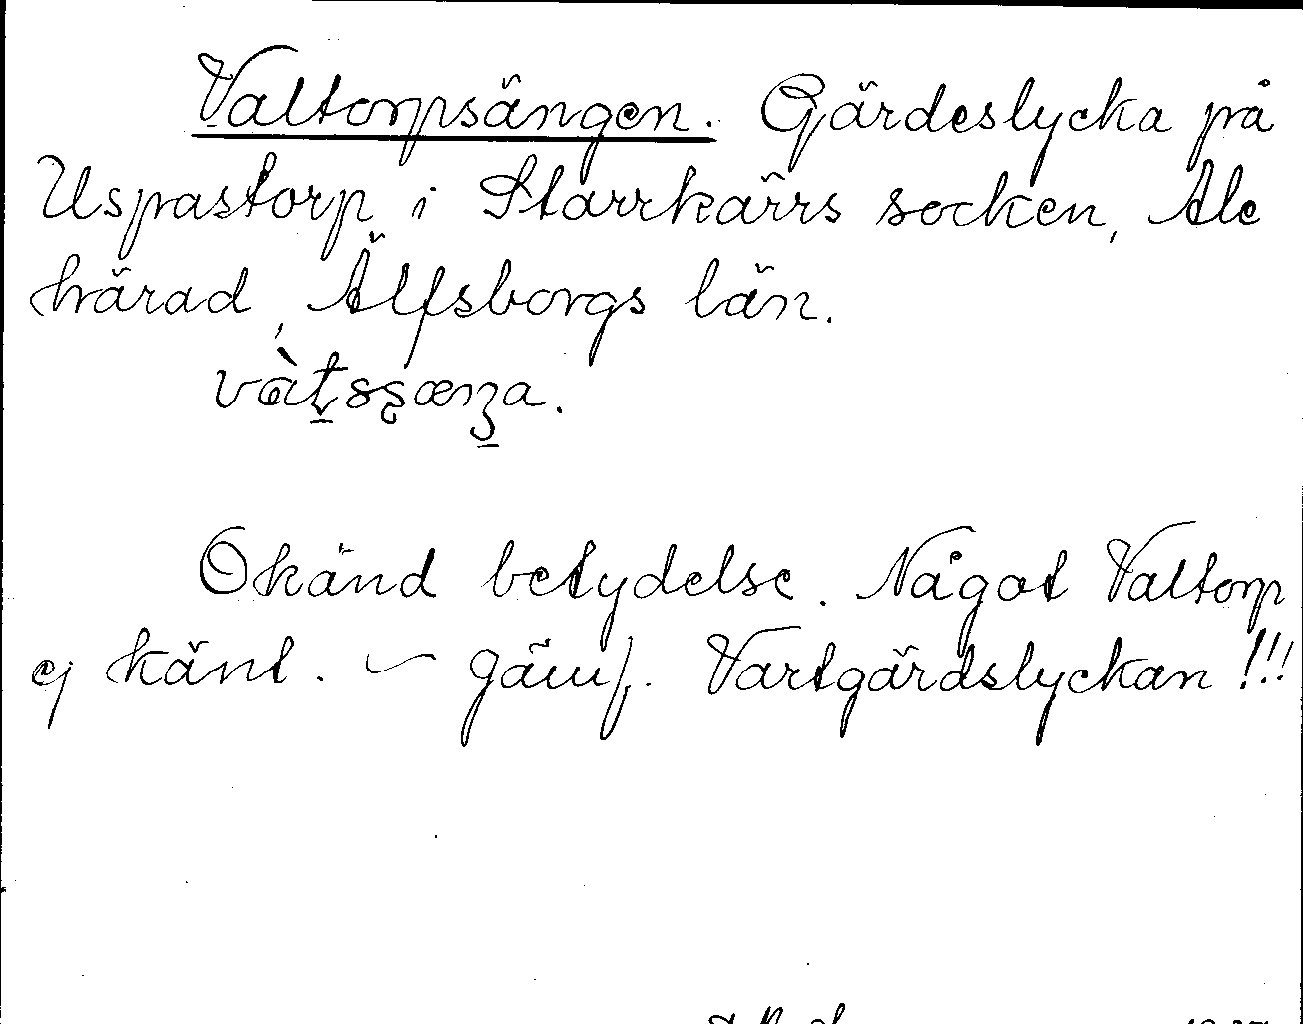 Valtorpsängen. Gärdeslycka på
Uspastorp i Starrkärrs socken, Ale
härad, Älfsborgs län.
Okänd betydelse. Något Valtorp
ej känt. — Jämf. Vartgärdslyckan!!!